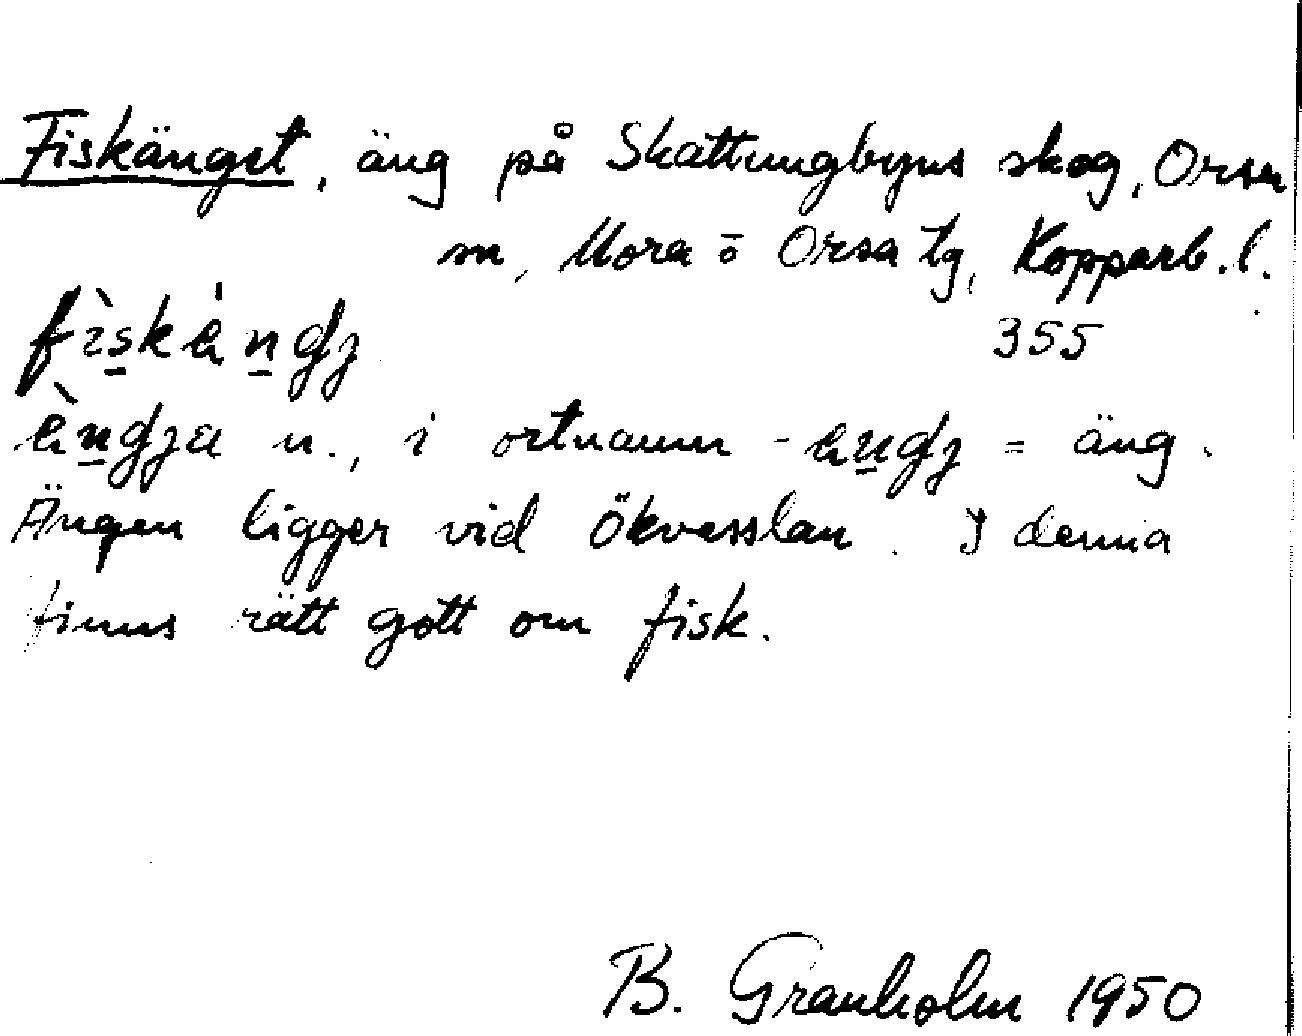 Fiskänget, äng på Skattungbyns skog, Orsa
sn, Mora o Orsa tg, Kopparb. l.
fìskä̀ndʒ 355
ä̀ndʒa n., i ortnamn -ändʒ = äng.
Ängen ligger vid Ökvesslan. I denna
finns rätt gott om fisk.
B. Granholm 1950